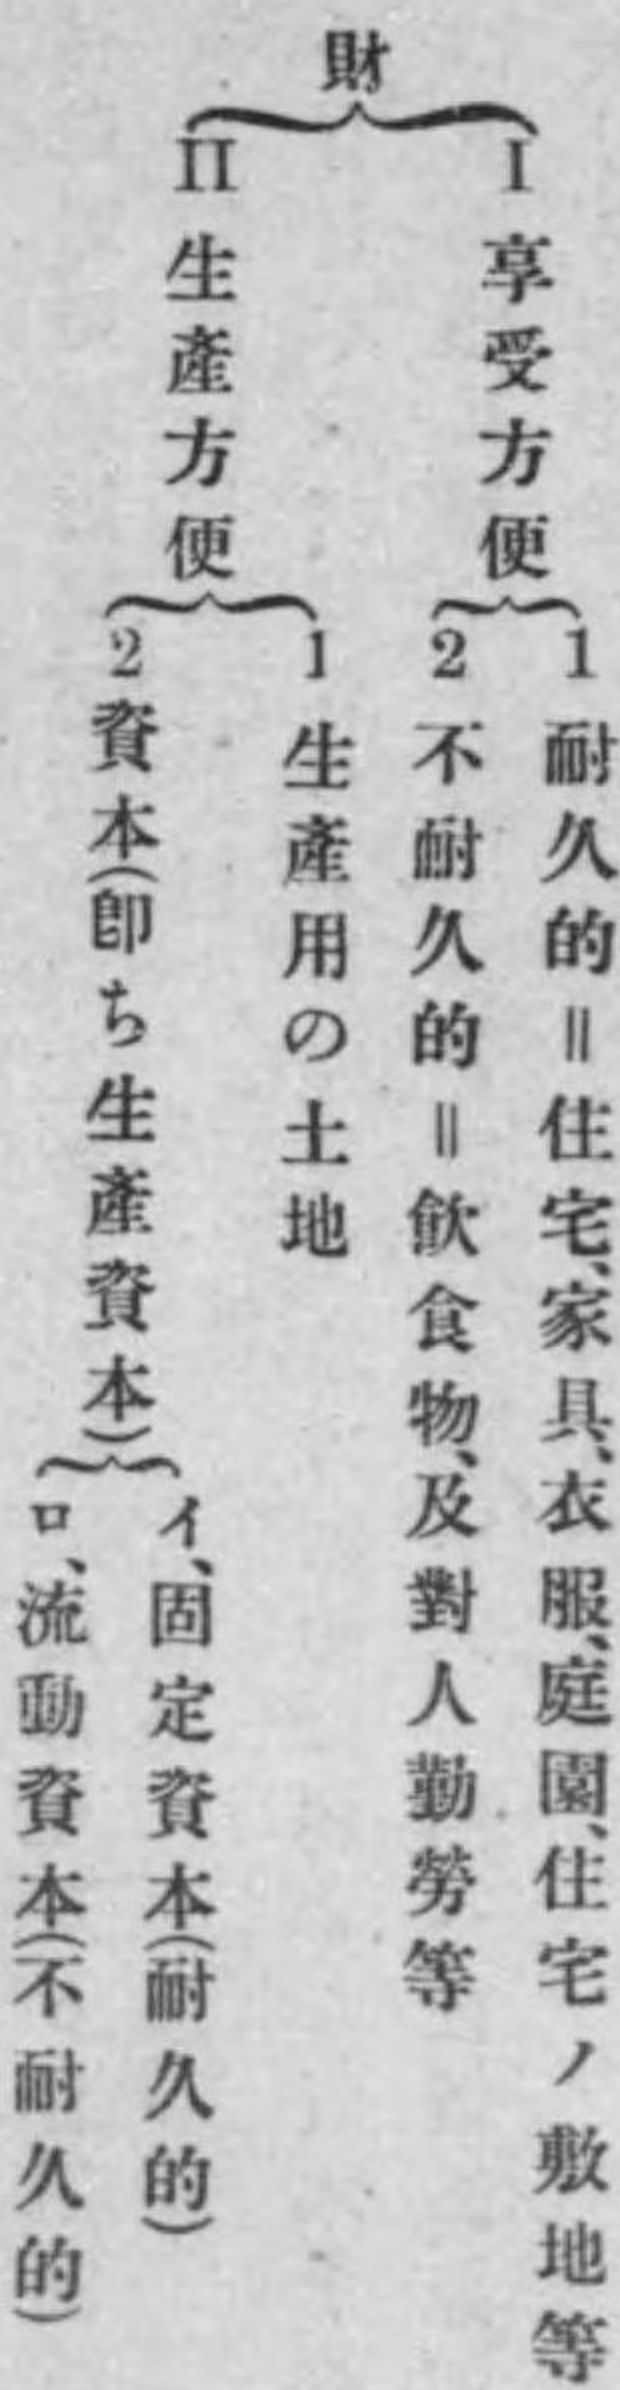 財
I 享受方便
1 耐久的＝住宅、家具、衣服、庭園、住宅ノ敷地等
2 不耐久的＝飮食物、及對人勤勞等
II 生產方便
1 生產用の土地
2 資本（卽ち生產資本）
イ、固定資本（耐久的）
ロ、流動資本（不耐久的）